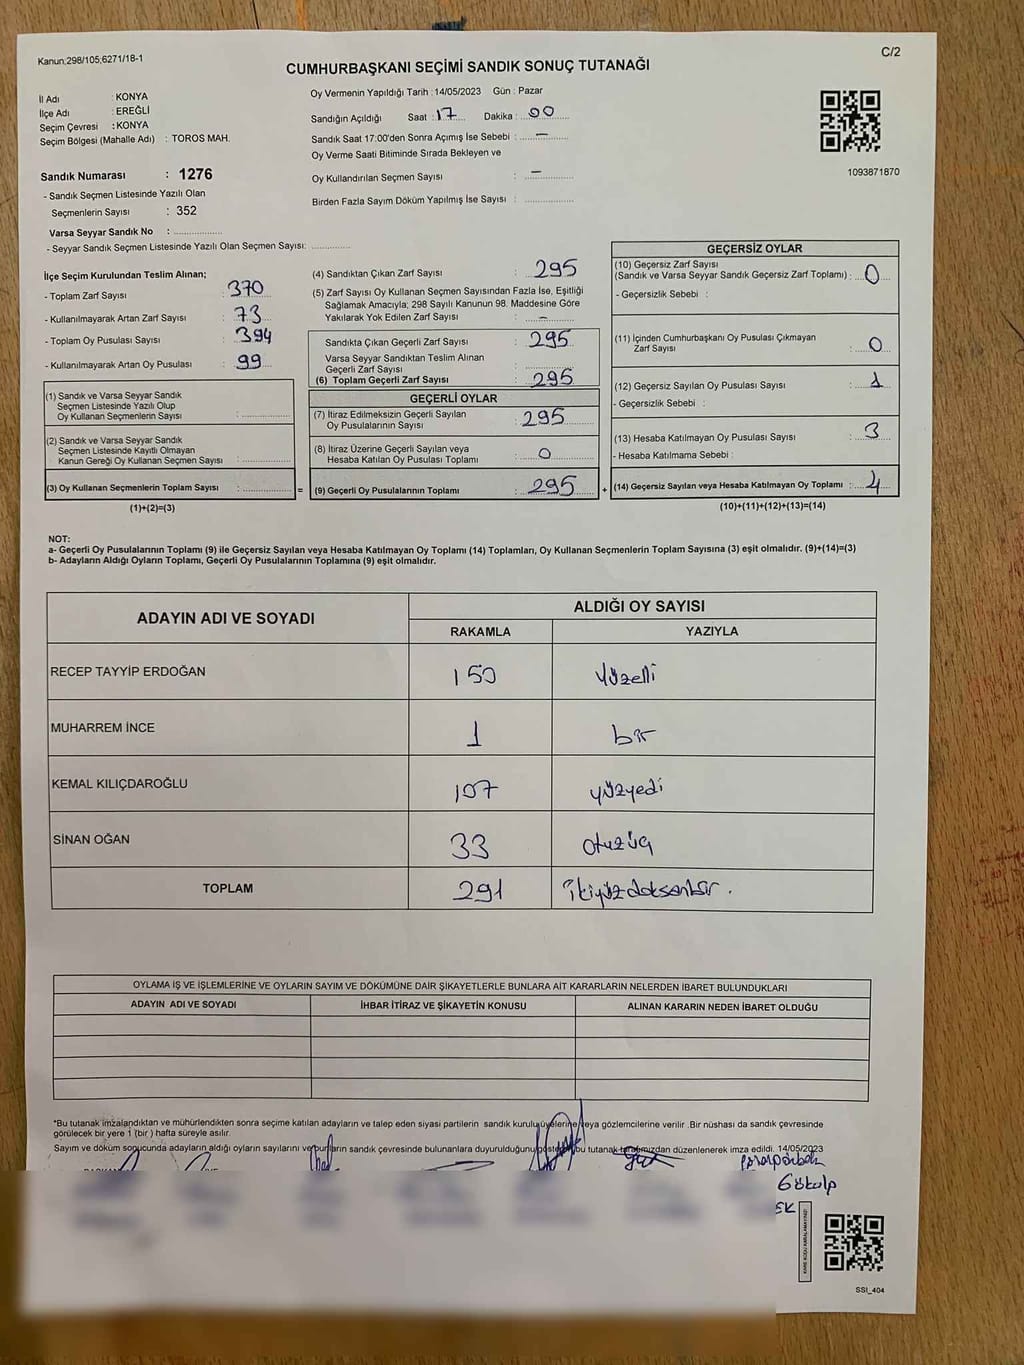 Kanun;298/105,6271/18-1
C/2
CUMHURBAŞKANI SEÇİMİ SANDIK SONUÇ TUTANAĞI
İl Adı : KONYA
İlçe Adı : EREĞLİ
Seçim Çevresi : KONYA
Seçim Bölgesi (Mahalle Adı) : TOROS MAH.
Sandık Numarası : 1276
- Sandık Seçmen Listesinde Yazılı Olan
Seçmenlerin Sayısı : 352
Varsa Seyyar Sandık No :
- Seyyar Sandık Seçmen Listesinde Yazılı Olan Seçmen Sayısı:
Oy Vermenin Yapıldığı Tarih : 14/05/2023 Gün : Pazar
Sandığın Açıldığı Saat : 17 Dakika : 00
Sandık Saat 17:00'den Sonra Açımış İse Sebebi : —
Oy Verme Saati Bitiminde Sırada Bekleyen ve
Oy Kullandırılan Seçmen Sayısı : —
Birden Fazla Sayım Döküm Yapılmış İse Sayısı :
1093871870
İlçe Seçim Kurulundan Teslim Alınan;
- Toplam Zarf Sayısı : 370
- Kullanılmayarak Artan Zarf Sayısı : 73
- Toplam Oy Pusulası Sayısı : 394
- Kullanılmayarak Artan Oy Pusulası : 99
(1) Sandık ve Varsa Seyyar Sandık
Seçmen Listesinde Yazılı Olup
Oy Kullanan Seçmenlerin Sayısı :
(2) Sandık ve Varsa Seyyar Sandık
Seçmen Listesinde Kayıtlı Olmayan
Kanun Gereği Oy Kullanan Seçmen Sayısı :
(3) Oy Kullanan Seçmenlerin Toplam Sayısı :
(1)+(2)=(3)
(4) Sandıktan Çıkan Zarf Sayısı : 295
(5) Zarf Sayısı Oy Kullanan Seçmen Sayısından Fazla İse, Eşitliği
Sağlamak Amacıyla; 298 Sayılı Kanunun 98. Maddesine Göre
Yakılarak Yok Edilen Zarf Sayısı : —
Sandıkta Çıkan Geçerli Zarf Sayısı : 295
Varsa Seyyar Sandıktan Teslim Alınan
Geçerli Zarf Sayısı :
(6) Toplam Geçerli Zarf Sayısı : 295
GEÇERLİ OYLAR
(7) İtiraz Edilmeksizin Geçerli Sayılan
Oy Pusulalarının Sayısı : 295
(8) İtiraz Üzerine Geçerli Sayılan veya
Hesaba Katılan Oy Pusulası Toplamı : 0
= (9) Geçerli Oy Pusulalarının Toplamı : 295 +
GEÇERSİZ OYLAR
(10) Geçersiz Zarf Sayısı
(Sandık ve Varsa Seyyar Sandık Geçersiz Zarf Toplamı) : 0
- Geçersizlik Sebebi :
(11) İçinden Cumhurbaşkanı Oy Pusulası Çıkmayan
Zarf Sayısı : 0
(12) Geçersiz Sayılan Oy Pusulası Sayısı : 1
- Geçersizlik Sebebi :
(13) Hesaba Katılmayan Oy Pusulası Sayısı : 3
- Hesaba Katılmama Sebebi :
(14) Geçersiz Sayılan veya Hesaba Katılmayan Oy Toplamı : 4
(10)+(11)+(12)+(13)=(14)
NOT:
a- Geçerli Oy Pusulalarının Toplamı (9) ile Geçersiz Sayılan veya Hesaba Katılmayan Oy Toplamı (14) Toplamları, Oy Kullanan Seçmenlerin Toplam Sayısına (3) eşit olmalıdır. (9)+(14)=(3)
b- Adayların Aldığı Oyların Toplamı, Geçerli Oy Pusulalarının Toplamına (9) eşit olmalıdır.
ADAYIN ADI VE SOYADI ALDIĞI OY SAYISI
RAKAMLA YAZIYLA
RECEP TAYYİP ERDOĞAN 150 yüzelli
MUHARREM İNCE 1 bir
KEMAL KILIÇDAROĞLU 107 yüzyedi
SİNAN OĞAN 33 otuzüç
TOPLAM 291 ikiyüzdoksanbir.
OYLAMA İŞ VE İŞLEMLERİNE VE OYLARIN SAYIM VE DÖKÜMÜNE DAİR ŞİKAYETLERLE BUNLARA AİT KARARLARIN NELERDEN İBARET BULUNDUKLARI
ADAYIN ADI VE SOYADI İHBAR İTİRAZ VE ŞİKAYETİN KONUSU ALINAN KARARIN NEDEN İBARET OLDUĞU
*Bu tutanak imzalandıktan ve mühürlendikten sonra seçime katılan adayların ve talep eden siyasi partilerin sandık kurulu üyelerine veya gözlemcilerine verilir .Bir nüshası da sandık çevresinde
görülecek bir yere 1 (bir ) hafta süreyle asılır.
Sayım ve döküm sonucunda adayların aldığı oyların sayılarını ve bunların sandık çevresinde bulunanlara duyurulduğunu gösteren bu tutanak tarafımızdan düzenlenerek imza edildi. 14/05/2023
Gökalp
EK
SSI_404